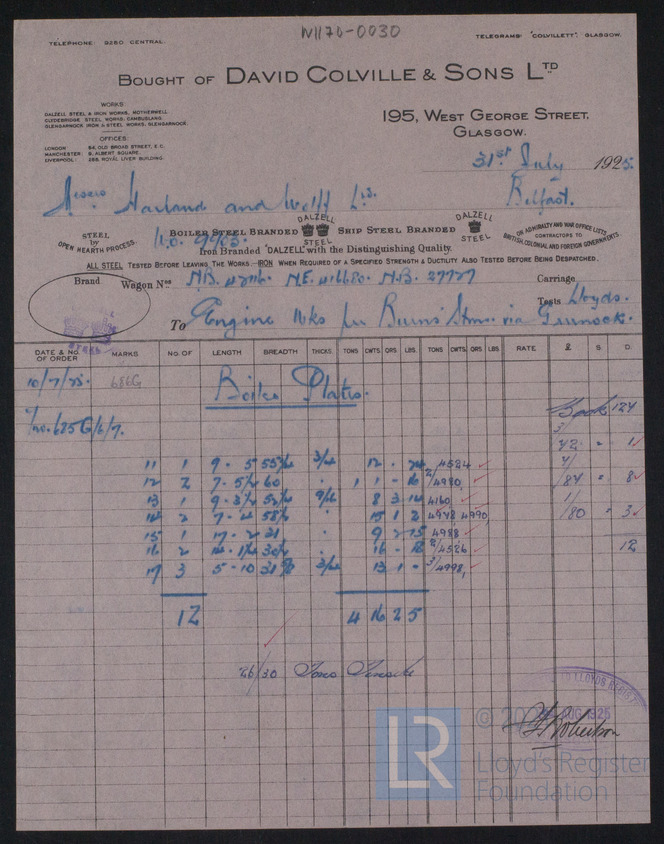 W1170-0030
TELEPHONE: 9260 CENTRAL.
TELEGRAMS: "COLVILLETT", GLASGOW.
BOUGHT OF DAVID COLVILLE & SONS LTD
WORKS
DALZELL STEEL & IRON WORKS, MOTHERWELL.
CLYDEBRIDGE STEEL WORKS, CAMBUSLANG.
GLENGARNOCK IRON & STEEL WORKS, GLENGARNOCK.
OFFICES:
LONDON: 54, OLD BROAD STREET, E.C.
MANCHESTER: 9, ALBERT SQUARE.
LIVERPOOL: 288, ROYAL LIVER BUILDING.
195, WEST GEORGE STREET,
GLASGOW.
31st July 1925.
Messrs Harland and Wolff Ltd. Belfast.
STEEL by OPEN HEARTH PROCESS.
BOILER STEEL BRANDED DALZELL STEEL SHIP STEEL BRANDED DALZELL STEEL
ON ADMIRALTY AND WAR OFFICE LISTS. CONTRACTORS TO BRITISH, COLONIAL AND FOREIGN GOVERNMENTS.
Iron Branded "DALZELL" with the Distinguishing Quality.
ALL STEEL TESTED BEFORE LEAVING THE WORKS.—IRON WHEN REQUIRED OF A SPECIFIED STRENGTH & DUCTILITY ALSO TESTED BEFORE BEING DESPATCHED.
Brand
Wagon Nos N.B. M.E. 416680. N.B. 27727
Carriage
Tests Lloyds.
To Engine Wks per Burns' Stmr. via Greenock.
DATE & NO. OF ORDER MARKS NO. OF LENGTH BREADTH THICKS. TONS CWTS. QRS. LBS. TONS CWTS. QRS. LBS. RATE £ S. D.
10/7/25. 686G Boiler Plates.
Book 124
625G/6/7.
72 - 1
11 1 9 - 5 12 4524
/84 - 8
12 2 60 1 1 - 16 2/4980
13 1 8 3 14 4160
/80 - 3
14 2 15 1 2 4978 4990
15 1 17 - 2 31 9 4988
12
16 2 16 - 2/4526
17 3 5 - 10 13 1 - 3/4998
12 4 16 2 5
26/30 Tons Tensile
LLOYDS REGISTER
AUG 1925
Robertson
LR
Lloyd's Register
Foundation